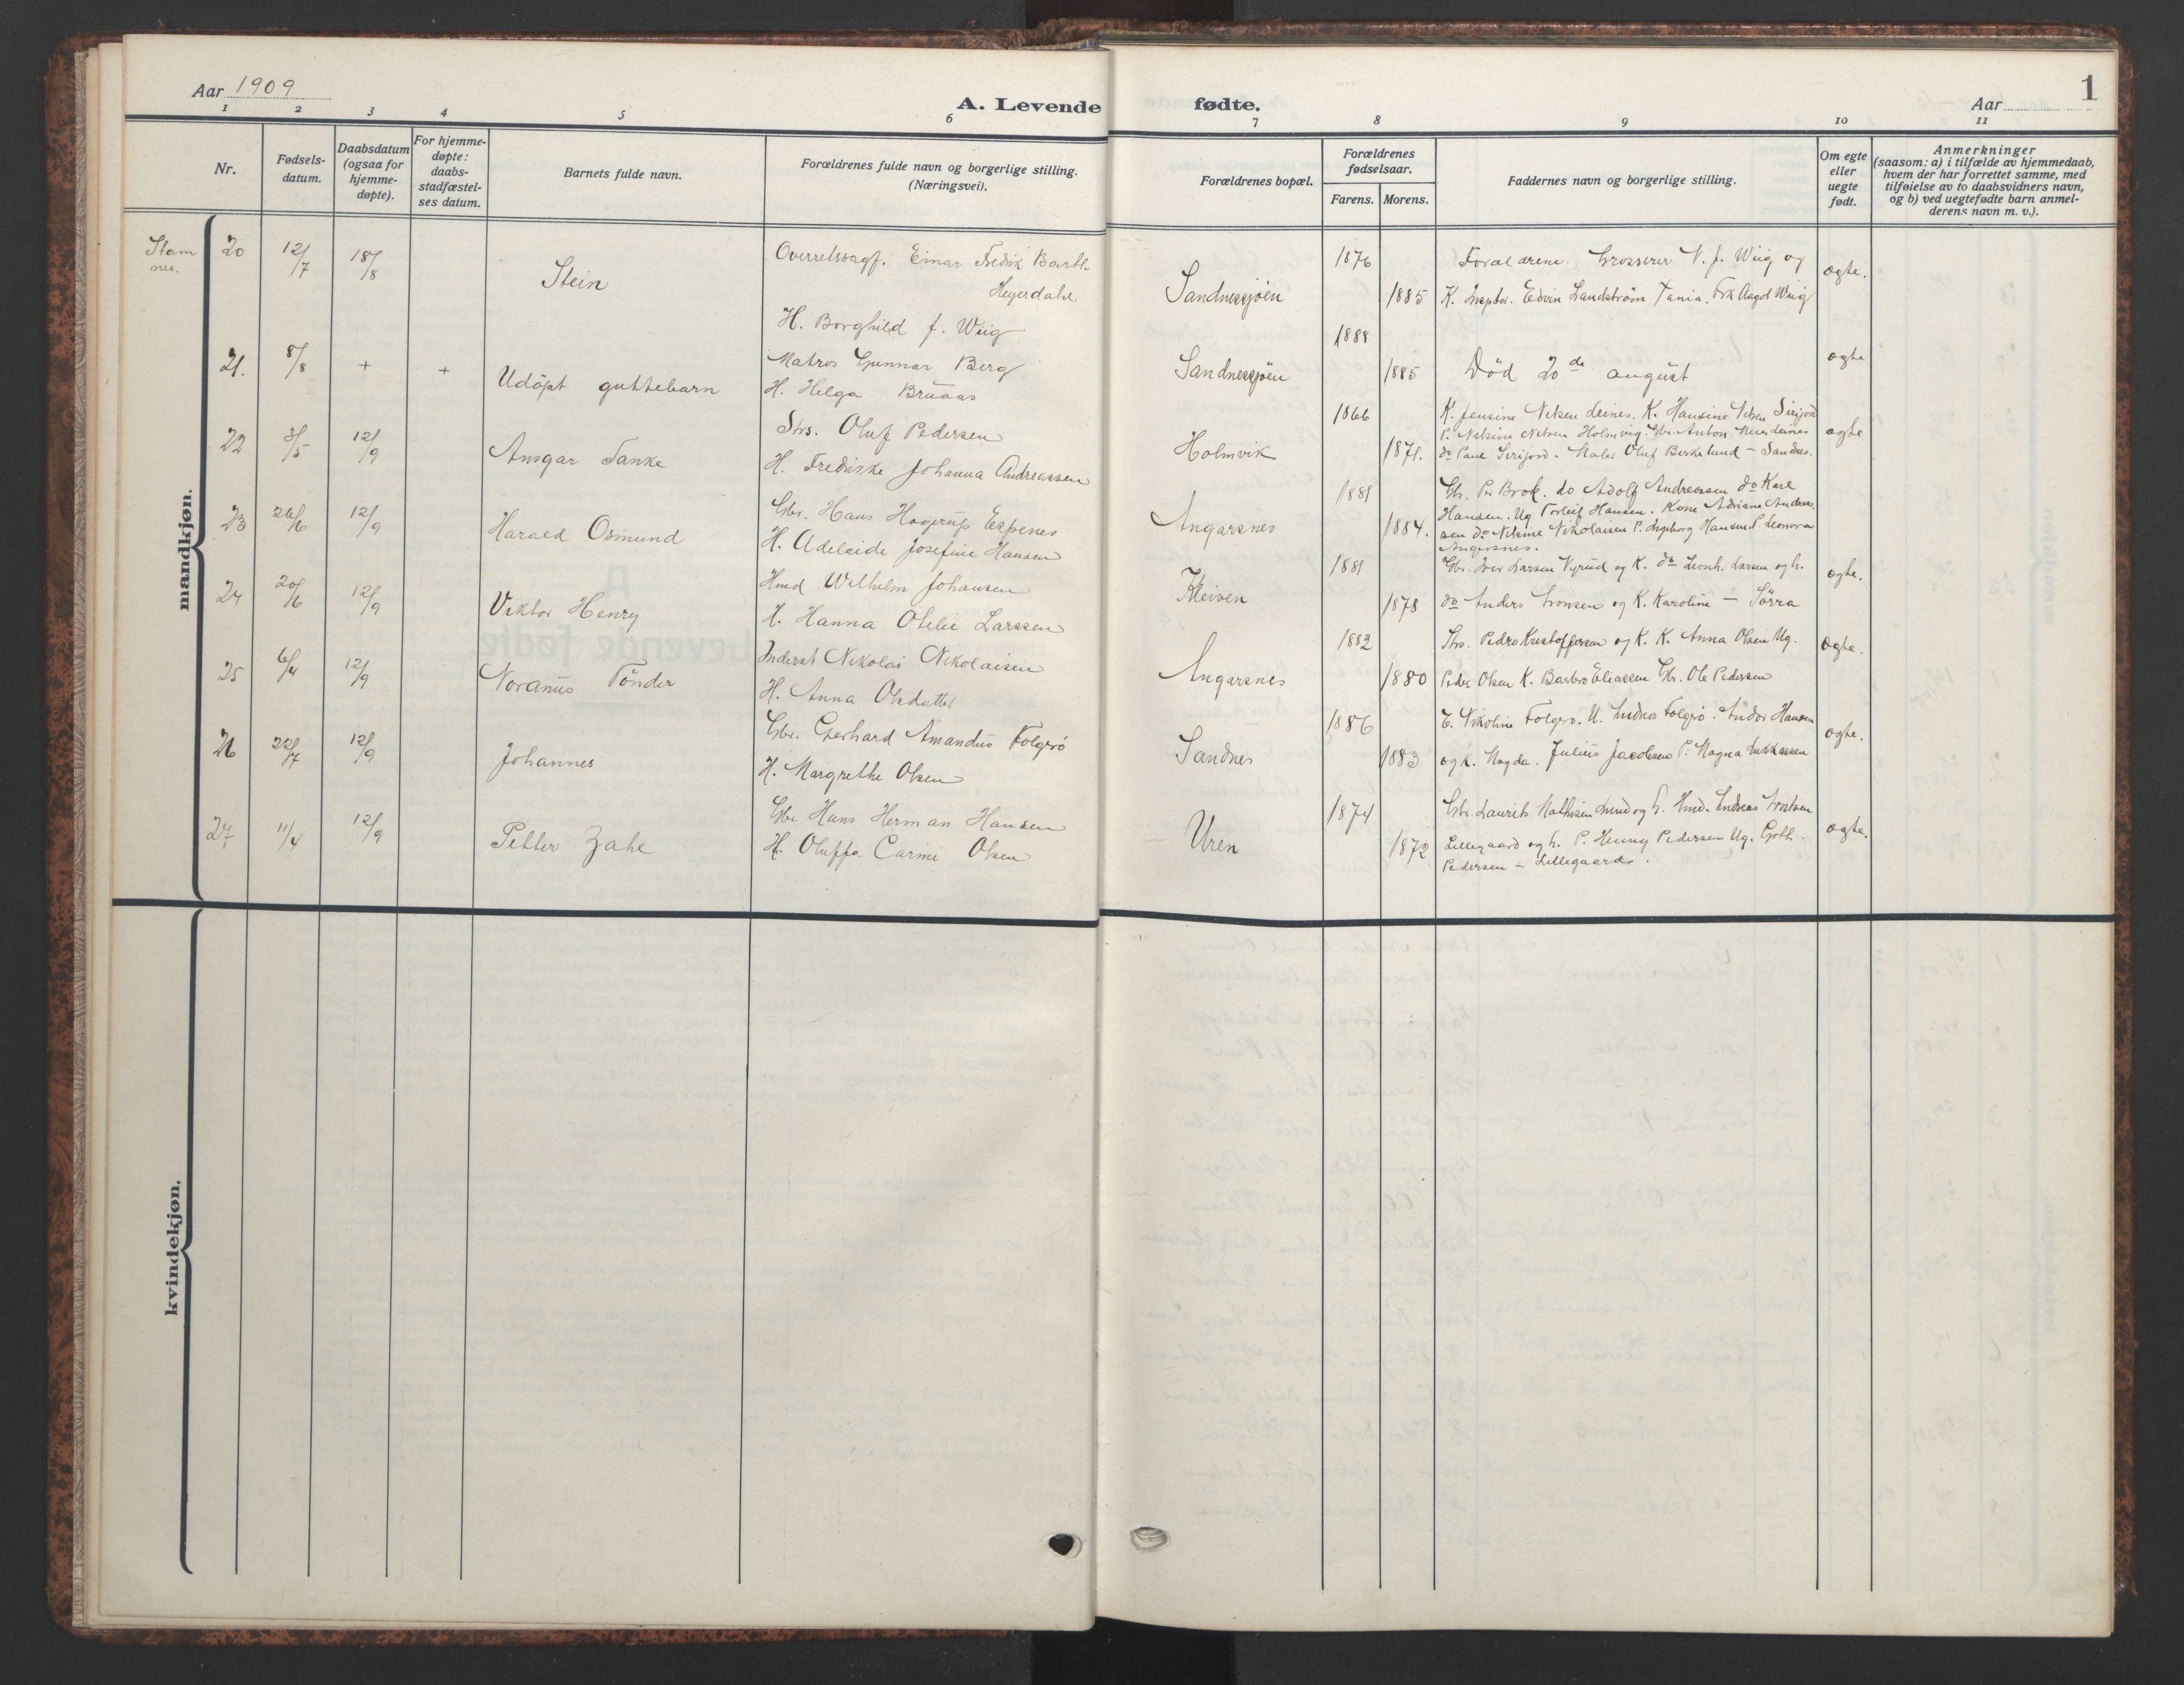 Aar 1909
A. Levende fødte.
Aar
1
1 2 3 4 5 6 7 8 9 10 11
Nr.
Fødsels-
datum.
Daabsdatum
(ogsaa for
hjemme-
døpte).
For hjemme-
døpte:
daabs-
stadfæstel-
ses datum.
Barnets fulde navn.
Forældrenes fulde navn og borgerlige stilling.
(Næringsvei).
Forældrenes bopæl.
Forældrenes
fødselsaar.
Farens. Morens.
Faddernes navn og borgerlige stilling.
Om egte
eller
uegte
født.
Anmerkninger
(saasom: a) i tilfælde av hjemmedaab,
hvem der har forrettet samme, med
tilføielse av to daabsvidners navn,
og b) ved uegtefødte barn anmel-
derens navn m. v.).
mandkjøn.
Stam
nes.
20 12/7 18/8 Stein
Overretssagf. Einar Fredrik Barth
Heyerdahl
H. Borghild f. Wiig
Sandnessjöen
1876
1885
Forældrene. Grosserer N. J. Wiig og
K. Insptør. Edvin Landström Tania. Frk Aagot Wiig
ægte.
21. 8/8 + + Udöpt guttebarn
Matros Gunnar Berg
H. Helga Brüaas
Sandnessjöen
1888
1885
Död 20de august
ægte
22 3/5 12/9 Ansgar Tanke
Strs. Oluf Pedersen
H. Fredrikke Johanna Andreassen
Holmvik
1866
1871.
K. Jensine Nilsen Leines. K. Hansine Nilsen
P. Nilsine Nilsen Holmvig. Gbr. Anton Leines
do Paul Maler Oluf Birkelund – Sandnes.
ægte
23 26/6 12/9 Harald Osmund
Gbr. Hans Hagerup Espenes
H. Adelaide Josefine Hansen
Angarsnes
1881
1884.
Gbr. Per Brok. do Adolf Andreassen do Karl
Hansen. Ug Torleif Hansen. Kone Adriane Andreas
sen do Nilsine Nikolaisen P. Ingeborg Hansen P. Leonora
Angersnes.
24 20/6 12/9 Viktor Henry
Hmd Wilhelm Johansen
H. Hanna Otelie Larssen
Kleiven
1881
1878
Gbr. Iver Larsen og K. do Leonh. Larsen og h.
do Anders og K. Karoline – Sörra
ægte.
25 6/4 12/9 Noranus Tönder
Inderst Nikolai Nikolaisen
H. Anna Olsdatter
Angarsnes
1882
1880
Strs. Peder Kristoffersen og K. K. Anna Olsen Ug.
Peder Olsen K. Barbro Eliassen Gbr. Ole Pedersen
ægte.
26 22/7 12/9 Johannes
Gbr. Gerhard Amandus Folgerö
H. Margrethe Olsen
Sandnes
1886
1883
E. Nikoline Folgerö. U. Folgerö. Andor Hansen
og K. Magda. Julius Jacobsen P. Magna Lukkassen
ægte.
27 11/4 12/9 Petter Zahe
Gbr. Hans Herman Hansen
H. Oluffa Carmi Olsen
Uren
1874
1872
Gbr. Laurits Mathisen Lund og h. Hmd. Andreas
Lillegaard og h. P. Henny Pedersen Ug.
Pedersen – Lillegaarde.
ægte.
kvindekjøn.